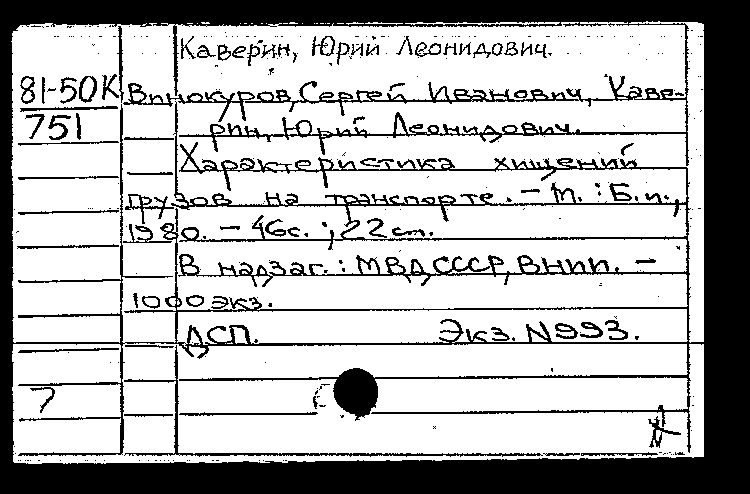 Каверин, Юрий Леонидович.
81-50К Винокуров, Сергей Иванович, Каве-
751 рин, Юрий Леонидович.
Характеристика хищений
грузов на транспорте. – М. : Б.и.,
1980. – 46с. ; 22 см.
В надзаг. : МВД СССР, ВНИИ. –
1000 экз.
ДСП. Экз. N993.
7